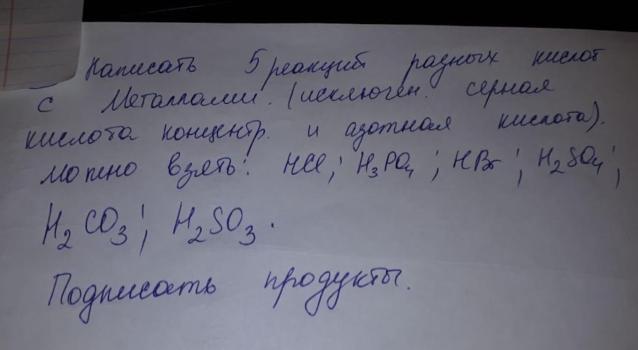 Написать 5 реакций разных кислот
с Металлами. (исключен. серная
кислота концентр. и азотная кислота).
можно взять: HCl; H₃PO₄; HBr; H₂SO₄;
H₂CO₃; H₂SO₃.
Подписать продукты.